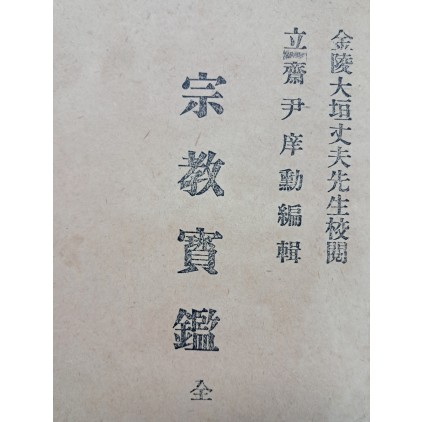 金陵大垣丈夫先生校閱
立齋尹庠勳編輯
宗教寶鑑全